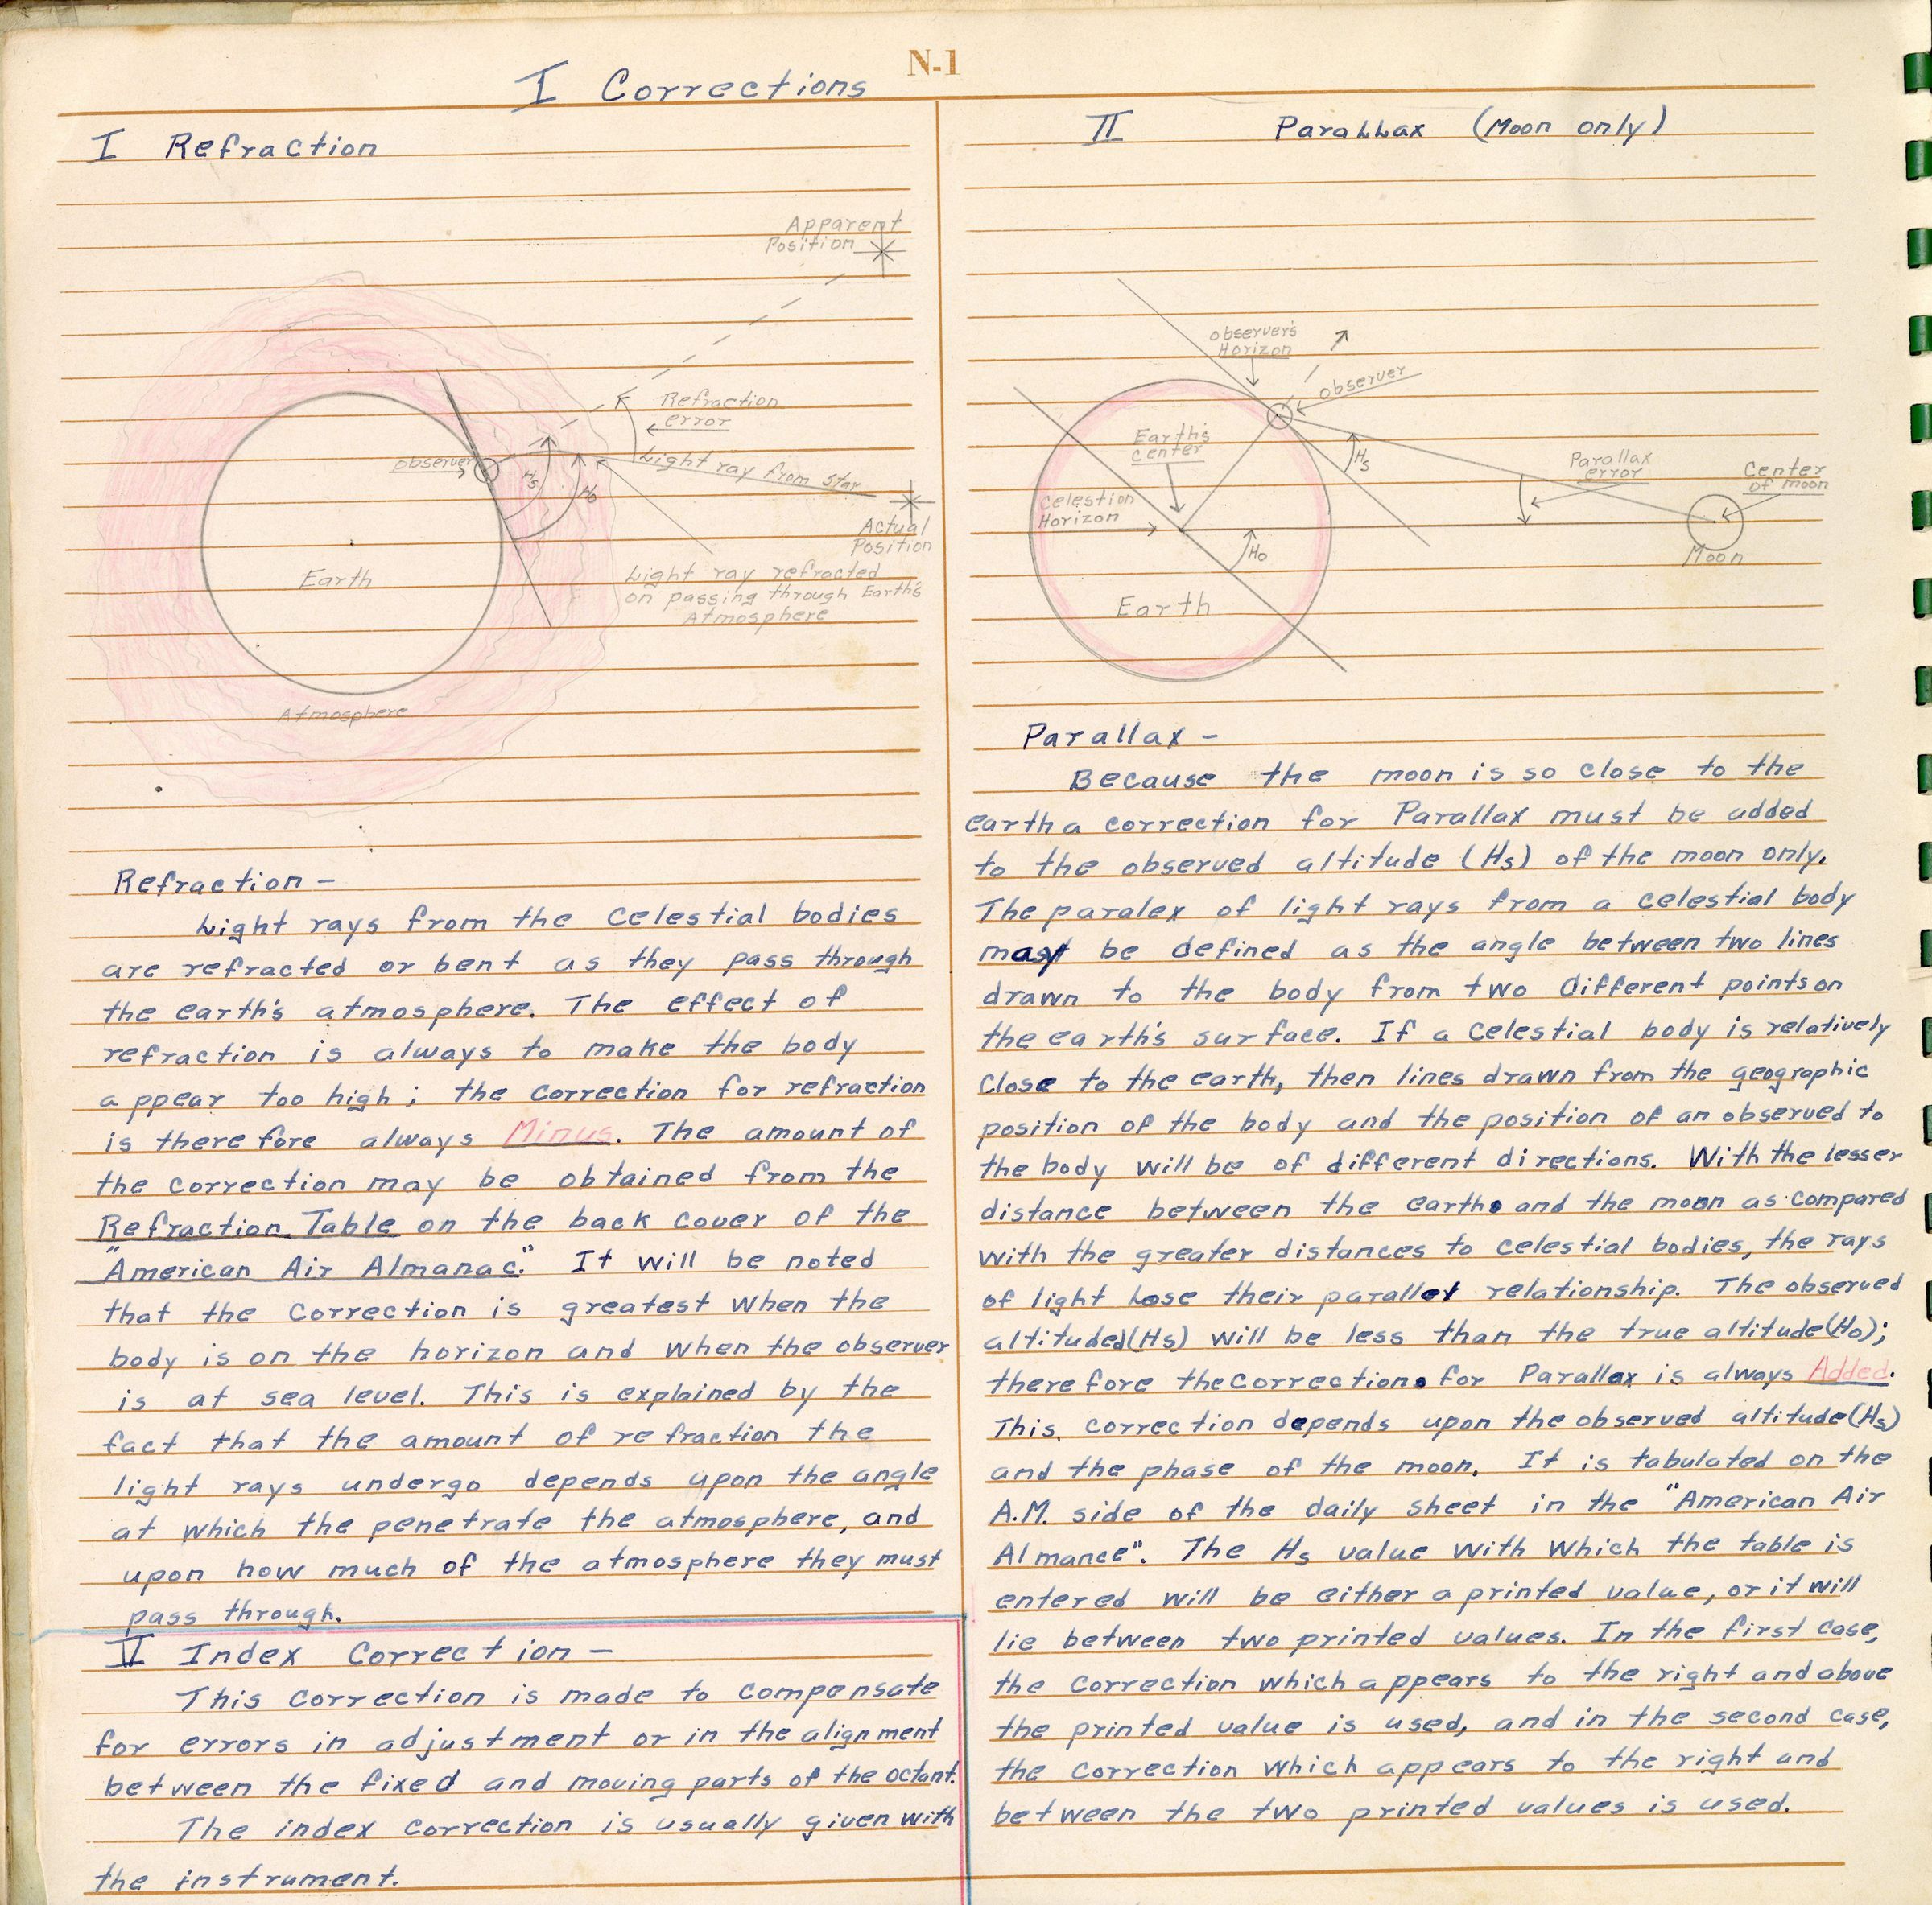 N-1
I Corrections
I Refraction
Apparent
Position
Refraction
error
Observer
Hs
Ho
Light ray from star
Actual
Position
Light ray refracted
on passing through Earth's
Atmosphere
Earth
Atmosphere
Refraction -
Light rays from the celestial bodies
are refracted or bent as they pass through
the earth's atmosphere. The effect of
refraction is always to make the body
appear too high; the correction for refraction
is therefore always Minus. The amount of
the correction may be obtained from the
Refraction Table on the back cover of the
"American Air Almanac." It will be noted
that the correction is greatest when the
body is on the horizon and when the observer
is at sea level. This is explained by the
fact that the amount of refraction the
light rays undergo depends upon the angle
at which the penetrate the atmosphere, and
upon how much of the atmosphere they must
pass through.
V Index Correction -
This correction is made to compensate
for errors in adjustment or in the alignment
between the fixed and moving parts of the octant.
The index correction is usually given with
the instrument.
II Parallax (Moon only)
Observer's
Horizon
Observer
Earth's
center
Hs
Parallax
error
Center
of moon
Celestion
Horizon
Ho
Moon
Earth
Parallax -
Because the moon is so close to the
earth a correction for Parallax must be added
to the observed altitude (Hs) of the moon only.
The paralex of light rays from a celestial body
may be defined as the angle between two lines
drawn to the body from two different points on
the earth's surface. If a celestial body is relatively
close to the earth, then lines drawn from the geographic
position of the body and the position of an observed to
the body will be of different directions. With the lesser
distance between the earth and the moon as compared
with the greater distances to celestial bodies, the rays
of light lose their parallel relationship. The observed
altituded (Hs) will be less than the true altitude (Ho);
therefore the corrections for Parallax is always Added.
This correction depends upon the observed altitude (Hs)
and the phase of the moon. It is tabulated on the
A.M. side of the daily sheet in the "American Air
Almance". The Hs value with which the table is
entered will be either a printed value, or it will
lie between two printed values. In the first case,
the correction which appears to the right and above
the printed value is used, and in the second case,
the correction which appears to the right and
between the two printed values is used.